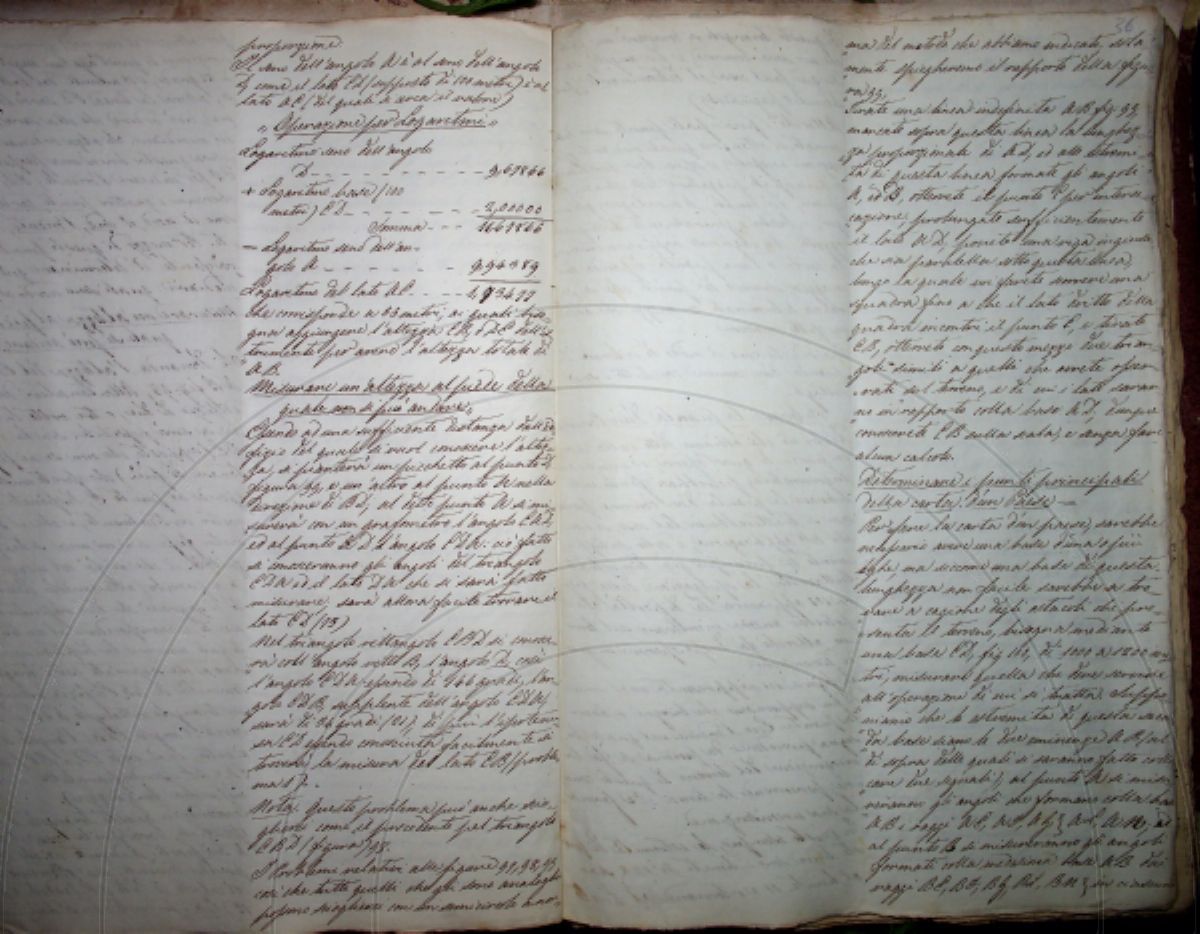 proporzione.
Il seno dell'angolo A è al seno dell'angolo
D, come il lato CD (supposto di 100 metri) è al
lato AC (del quale si cerca il valore)
„ Operazione per Logaritmi „
Logaritmo seno dell'angolo
D - - - - - - - - - - - 9,67866
+ Logaritmo base (100
metri) CD - - - - - - - 2,00000
Somma - - - 11,67866
— Logaritmo seno dell'an-
golo A - - - - - - - 9,94389
Logaritmo del lato AC - - - - - 1,73477
che corrisponde a metri, ai quali biso
gna aggiungere l'altezza CB, o
trumento per avere l'altezza totale di
AB.
Misurare un'altezza al piede della
quale non si può andare.
Essendo ad una sufficiente distanza dall'edi
fizio del quale si vuol conoscere l'altez-
za, si pianterà un picchetto al punto D,
figura 99, e un'altro al punto A nella
direzione di BD, al detto punto A si mi-
surerà con un grafometro l'angolo CAD,
ed al punto D l'angolo CDA. ciò fatto
si conosceranno gli angoli del triangolo
CDA ed il lato DA che si sarà fatto
misurare, sarà allora facile trovare il
lato CD (93)
Nel triangolo rettangolo CBD si conosce-
rà coll'angolo retto B, l'angolo D, così
l'angolo CDA essendo di 146 gradi, l'an-
golo CDB, supplente dell'angolo CDA,
sarà di 34 gradi (21), di più l'ipotenu-
sa CD essendo conosciuta facilmente si
troverà la misura del lato CB (proble-
ma 5.)
Nota. Questo problema può anche scio-
gliersi come il precedente pel triangolo
CBD (figura) 98.
I Problemi relativi alle figure 97, 98, 99,
così che tutti quelli che gli sono analoghi
possono sciogliersi con un semicircolo a nor-
36
ma del metodo che abbiamo indicato, sola
mente spiegheremo il rapporto della figu-
ra 99.
Tirate una linea indefinita AB fig. 99,
marcate sopra questa linea la lunghez-
za proporzionale di AD, ed alle estremi-
tà di questa linea formate gli angoli
A, ed D, otterrete il punto C per interse-
cazione, prolungate sufficientemente
il lato AD, ponete una riga
che sia parallela sotto questa linea,
lungo la quale un farete scorrere una
squadra fino a che il lato dritto della
squadra incontri il punto C, e tirate
CB, otterrete con questo mezzo due trian-
goli simili a quelli che avrete osser-
vati sul terreno, e di cui i lati saran
no in rapporto colla base AD, dunque
conoscerete CB sulla scala, e senza fare
alcun calcolo.
Determinare i punti principali
della carta d'un Paese —
Per fare la carta d'un paese, sarebbe
necessario avere una base d'una o più
leghe ma siccome una base di questa
lunghezza non facile sarebbe a tro-
vare a cagione degli ostacoli che pre-
senta il terreno, bisogna mediante
una base CD, fig. 102, di 1000 a 1200 me
tri, misurare quella che deve servire
all'operazione di cui si tratta. Suppo-
niamo che le estremità di questa secon
da base siano le due eminenze A B (al
di sopra delle quali si saranno fatto collo
care due segnali), al punto A si misu
reranno gli angoli che formano colla base
AB i raggi AC, AF, AG, AL, AN, ed
al punto B si misureranno gli angoli
formati colla medesima base AB dai
raggi BC, BF, BG, BL, BN, in ciascun